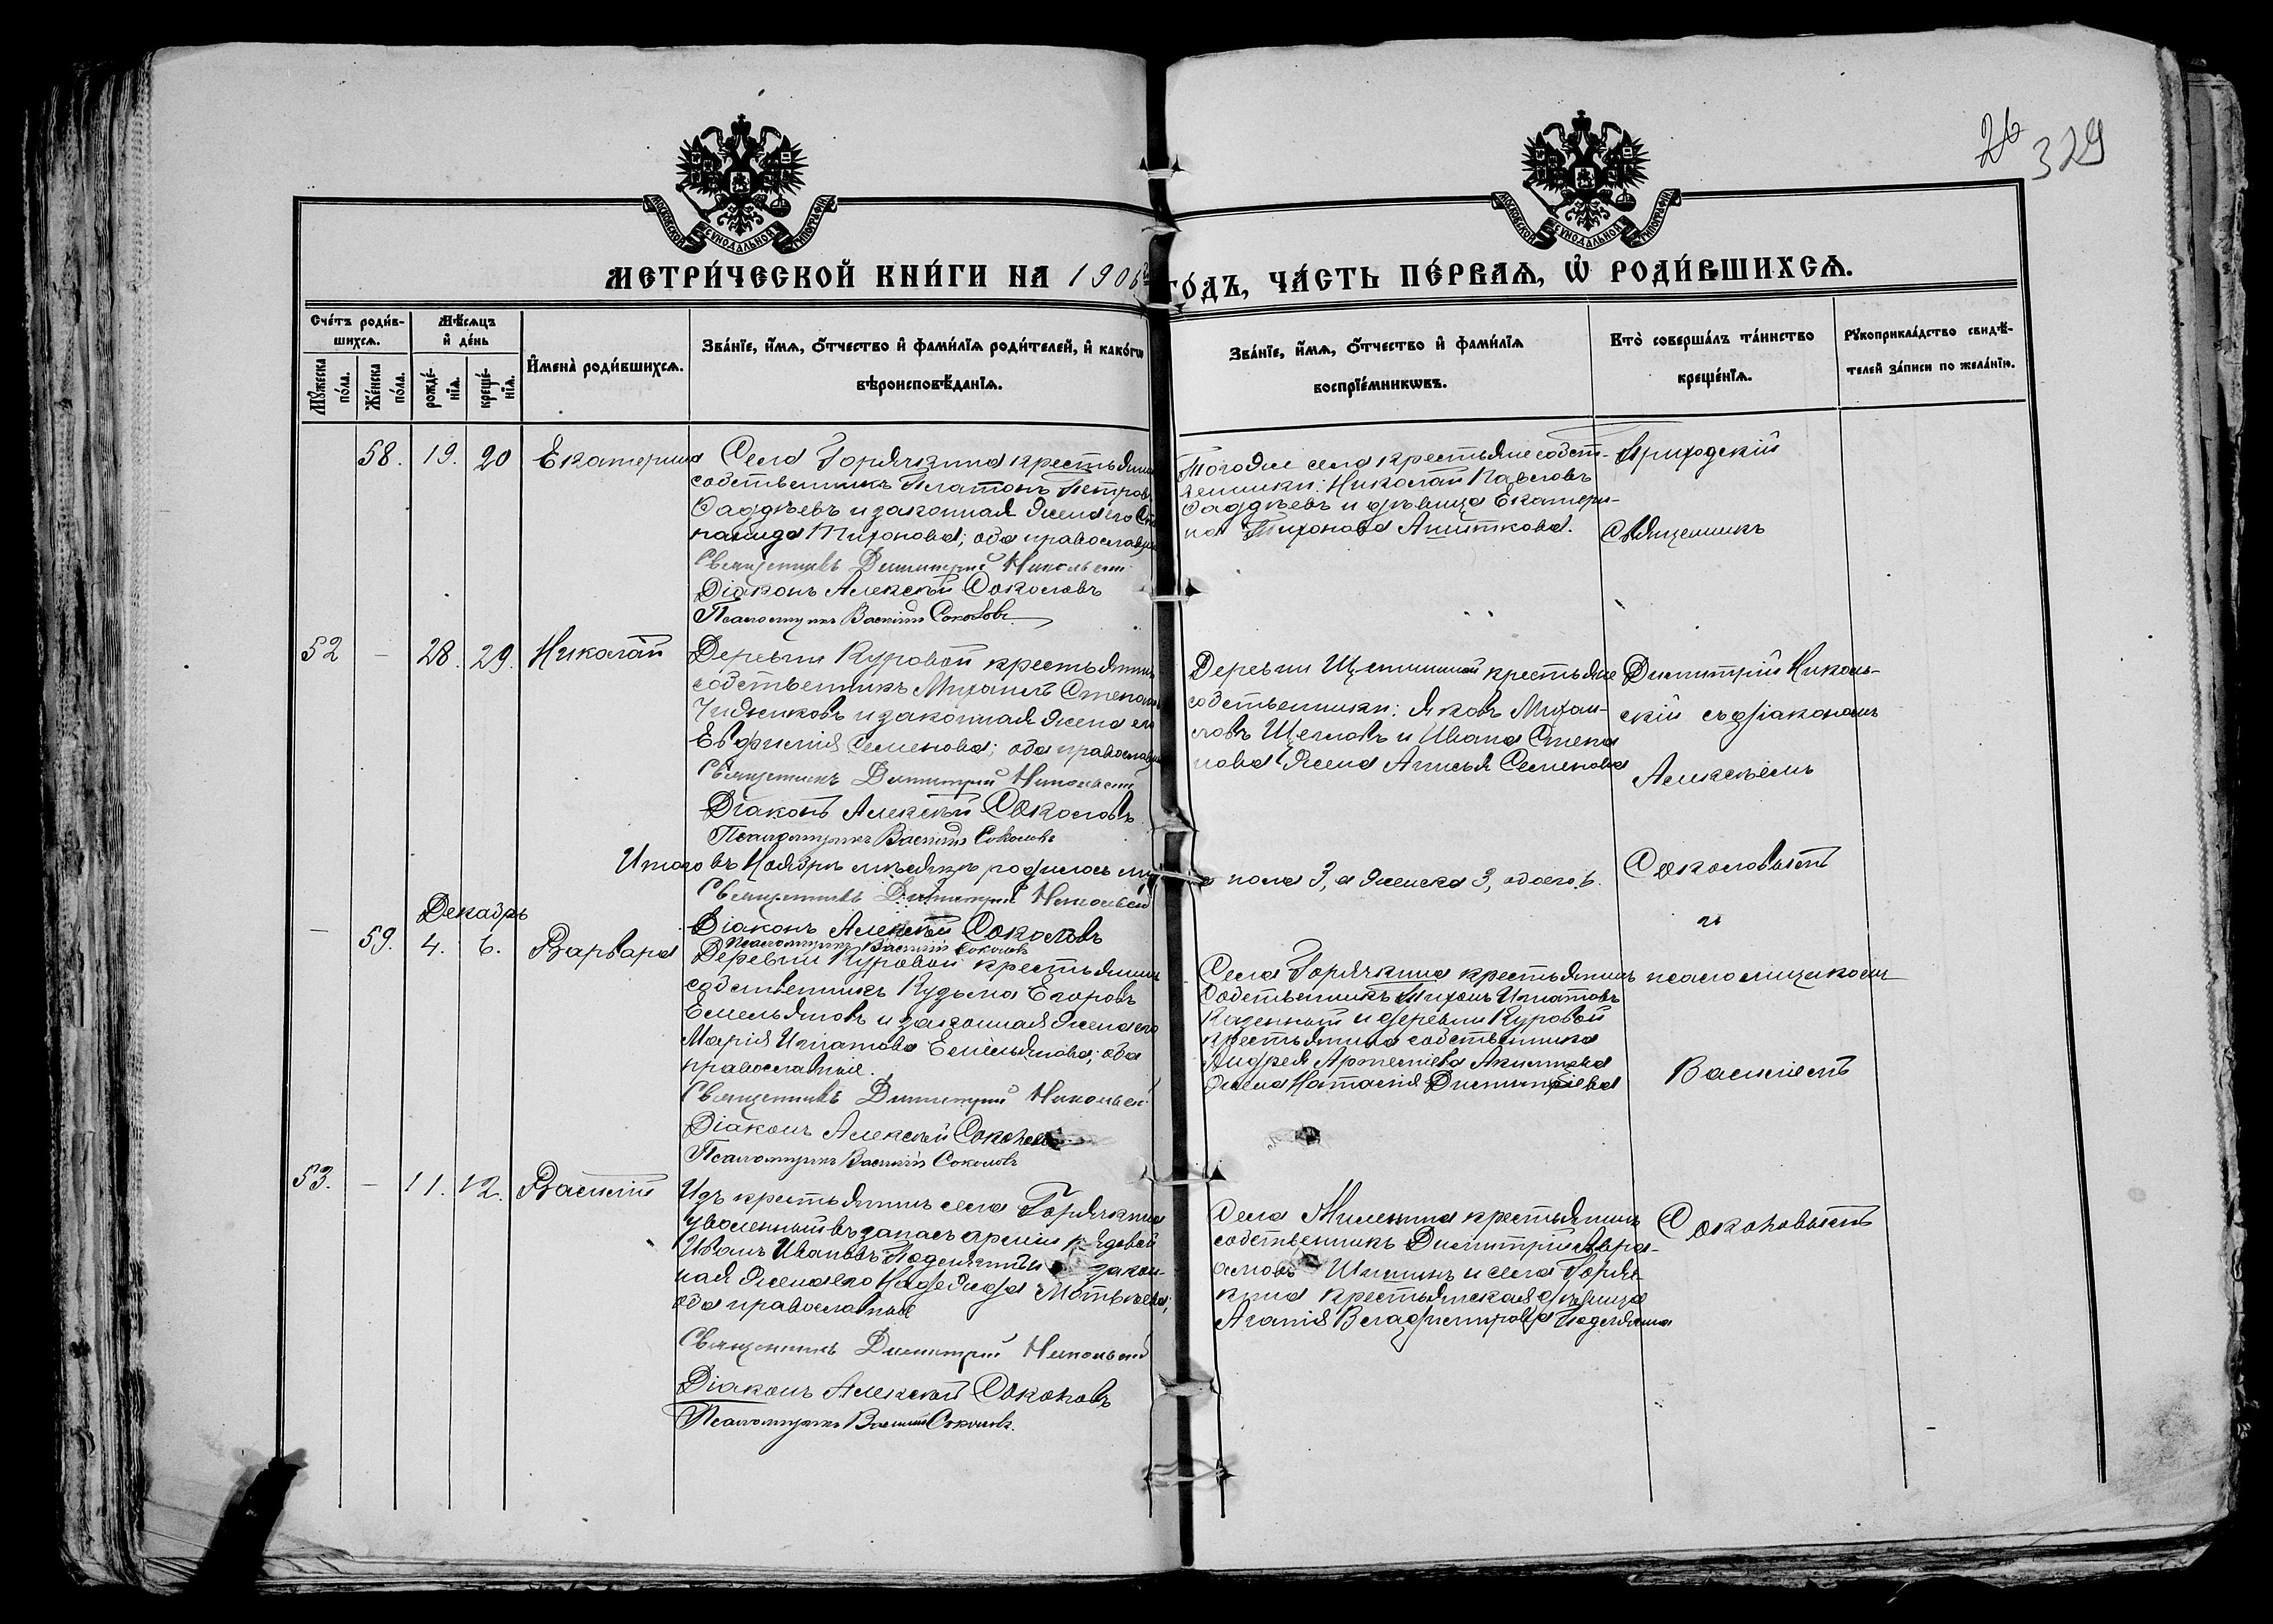 26
329
МОСКОВСКОЙ СУНОДАЛЬНОЙ ТИПОГРАФІИ
МОСКОВСКОЙ СУНОДАЛЬНОЙ ТИПОГРАФІИ
МЕТРИ́ЧЕСКОЙ КНИ́ГИ НА 1905 ГО́ДЪ, ЧА́СТЬ ПЕ́РВАѦ, Ѡ РОДИ́ВШИХСѦ.
Сче́тъ роди́вшихсѧ.
Мѹжеска по́ла.
Же́нска по́ла.
Мѣ́сѧцъ и де́нь
рожде́нїѧ.
креще́нїѧ.
Имена̀ роди́вшихсѧ.
Зва́нїе, и́мѧ, о́тчество и фами́лїѧ роди́телей, и како́гѡ
вѣроисповѣ́данїѧ.
Зва́нїе, и́мѧ, о́тчество и фами́лїѧ
воспрїе́мникѡвъ.
Кто̀ соверша́лъ та́инство
креще́нїѧ.
Рукоприкла́дство свидѣ́-
телей за́писи по жела́нїю.
58. 19. 20 Екатерина
Села Горячкина крестьянинъ
собственникъ Платонъ Петровъ
Фаддѣевъ и законная жена его
Тихонова; оба православные
Священникъ Димитрій Никольскій
Діаконъ Алексѣй Соколовъ
Псаломщикъ Василій Соколовъ
Тогоже села крестьяне собст-
венники: Николай Павловъ
Фаддѣевъ и дѣвица Екатери-
на Тихонова
Приходскій
Священникъ
52 — 28. 29. Николай
Деревни Куровой крестьянинъ
собственникъ Михаилъ Степановъ
Чижиковъ и законная жена его
Евфимія Семенова; оба православные
Священникъ Димитрій Никольскій
Діаконъ Алексѣй Соколовъ
Псаломщикъ Василій Соколовъ
Деревни крестьяне
собственники: Яковъ Михаи-
ловъ Щегловъ и Ивана Степа
нова жена Анисья Семенова
Димитрій Николь-
скій съ діакономъ
Алексѣемъ
Итого въ Ноябрѣ мѣсяцѣ родилось му
пола 3, а женска 3, обоего 6.
Священникъ Димитрій Никольскій
Діаконъ Алексѣй Соколовъ
Псаломщикъ Василій Соколовъ
Соколовымъ
и
Декабрь
— 59. 4. 6. Варвара
Деревни Куровой крестьянинъ
собственникъ Кузьма Егоровъ
Емельяновъ и законная жена его
Марія Игнатова Емельянова; оба
православные.
Священникъ Димитрій Никольскій
Діаконъ Алексѣй Соколовъ
Псаломщикъ Василій Соколовъ
Села Горячкина крестьянинъ
собственникъ Тихонъ Игнатовъ
и деревни Куровой
крестьянина собственника
Андрея Артеміева
жена Наталія Димитріева
псаломщикомъ
Василіемъ
53. — 11. 12. Василій
Изъ крестьянъ села Горячкина
уволенный въ запасъ арміи рядовой
Иванъ Ивановъ и закон-
ная жена его Надежда Матвѣева;
оба православные
Священникъ Димитрій Никольскій
Діаконъ Алексѣй Соколовъ
Псаломщикъ Василій Соколовъ.
Села крестьянинъ
собственникъ Димитрій Авра-
амовъ и села Горяч-
кина крестьянская дѣвица
Агапія
Соколовымъ